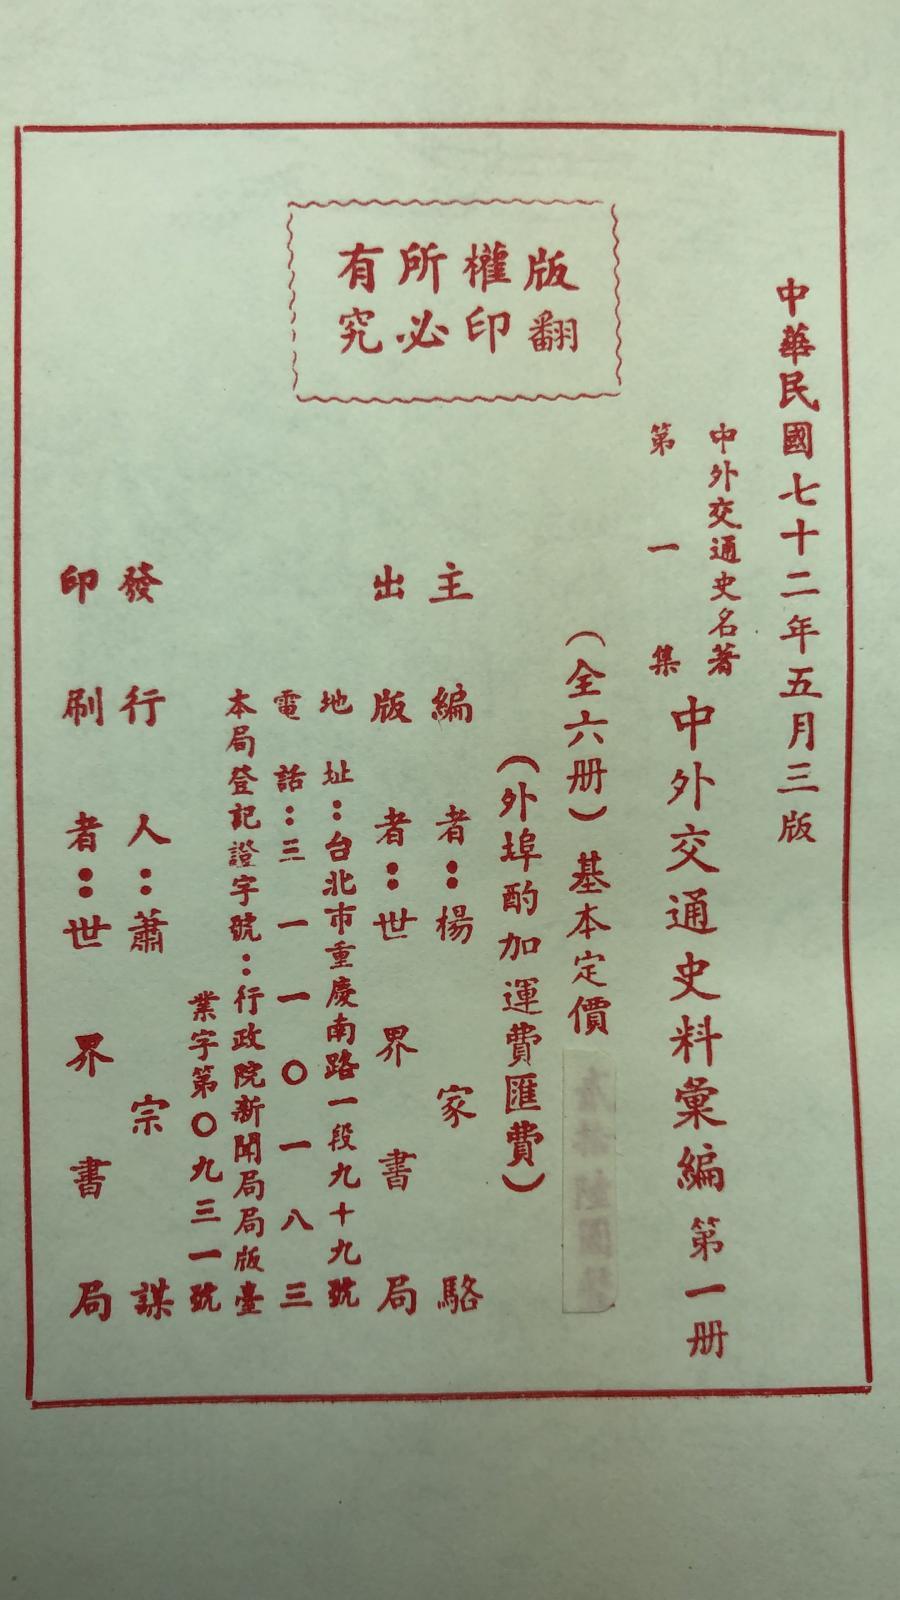 中華民國七十二年五月三版
中外交通史名著
第一集
中外交通史料彙編第一册
(全六册)基本定價
(外埠酌加運費匯費)
版權所有
翻印必究
主編者:楊家駱
出版者:世界書局
地址:台北市重慶南路一段九十九號
電話:三一一〇一八三
本局登記證字號:行政院新聞局局版臺
業字第〇九三一號
發行人:蕭宗謀
印刷者:世界書局